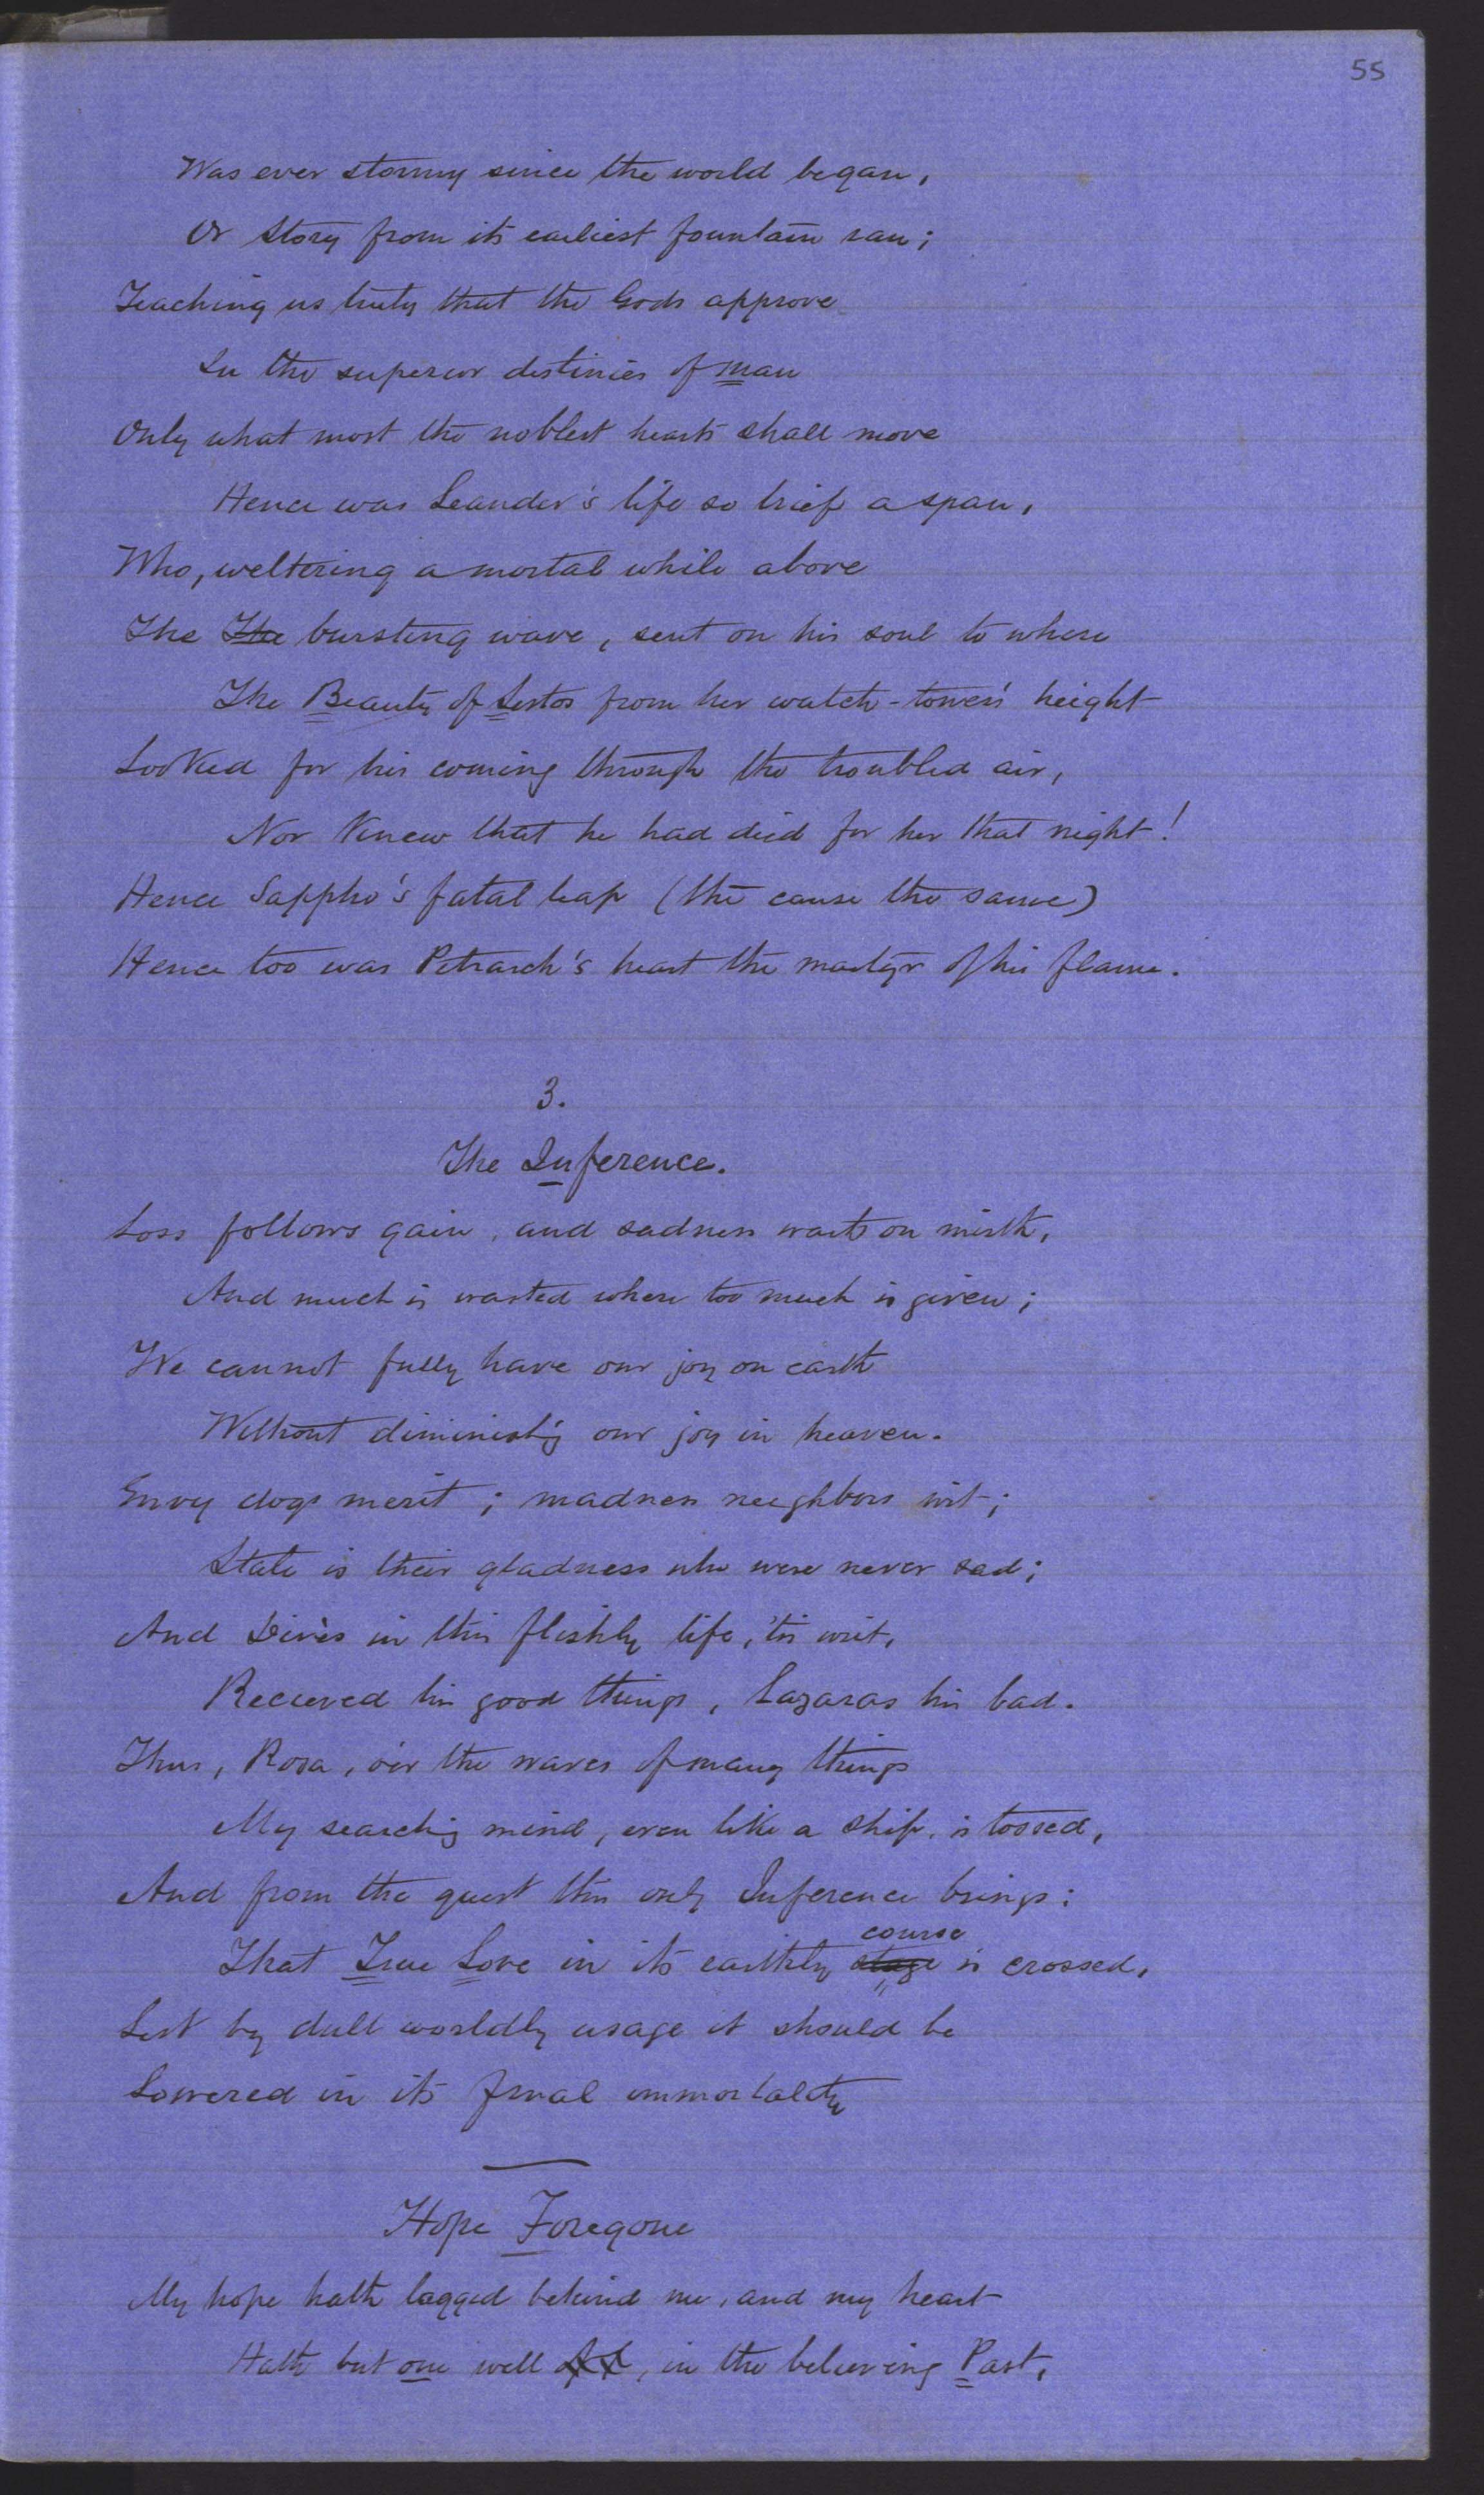 55
Was ever stormy since the world began,
Or story from its earliest fountain ran;
Teaching us truly that the Gods approve
In the superior destinies of man
Only what most the noblest hearts shall move
Hence was Leander's life so brief a span,
Who, weltering a mortal while above
The The bursting wave, sent on his soul to where
The Beauty of Sestos from her watch-tower's height
Looked for his coming through the troubled air,
Nor knew that he had died for her that night!
Hence Sappho's fatal leap (the cause the same)
Hence too was Petrarch's heart the martyr of his flame.
3.
The Inference.
Loss follows gain, and sadness waits on mirth,
And much is wasted where too much is given;
We cannot fully have our joy on earth
Without diminish'g our joy in heaven.
Envy dogs merit; madness neighbors wit;
Stale is their gladness who were never sad;
And Dives in this fleshly life, 'tis writ,
Recieved his good things, Lazaras his bad.
Thus, Rosa, o'er the waves of many things
My search'g mind, even like a ship, is tossed,
And from the quest this only Inference brings:
course
That True Love in its earthly stage is crossed,
Lest by dull worldly usage it should be
Lowered in its final immortality
Hope Foregone
My hope hath lagged behind me, and my heart
Hath but one well , in the believing Past,